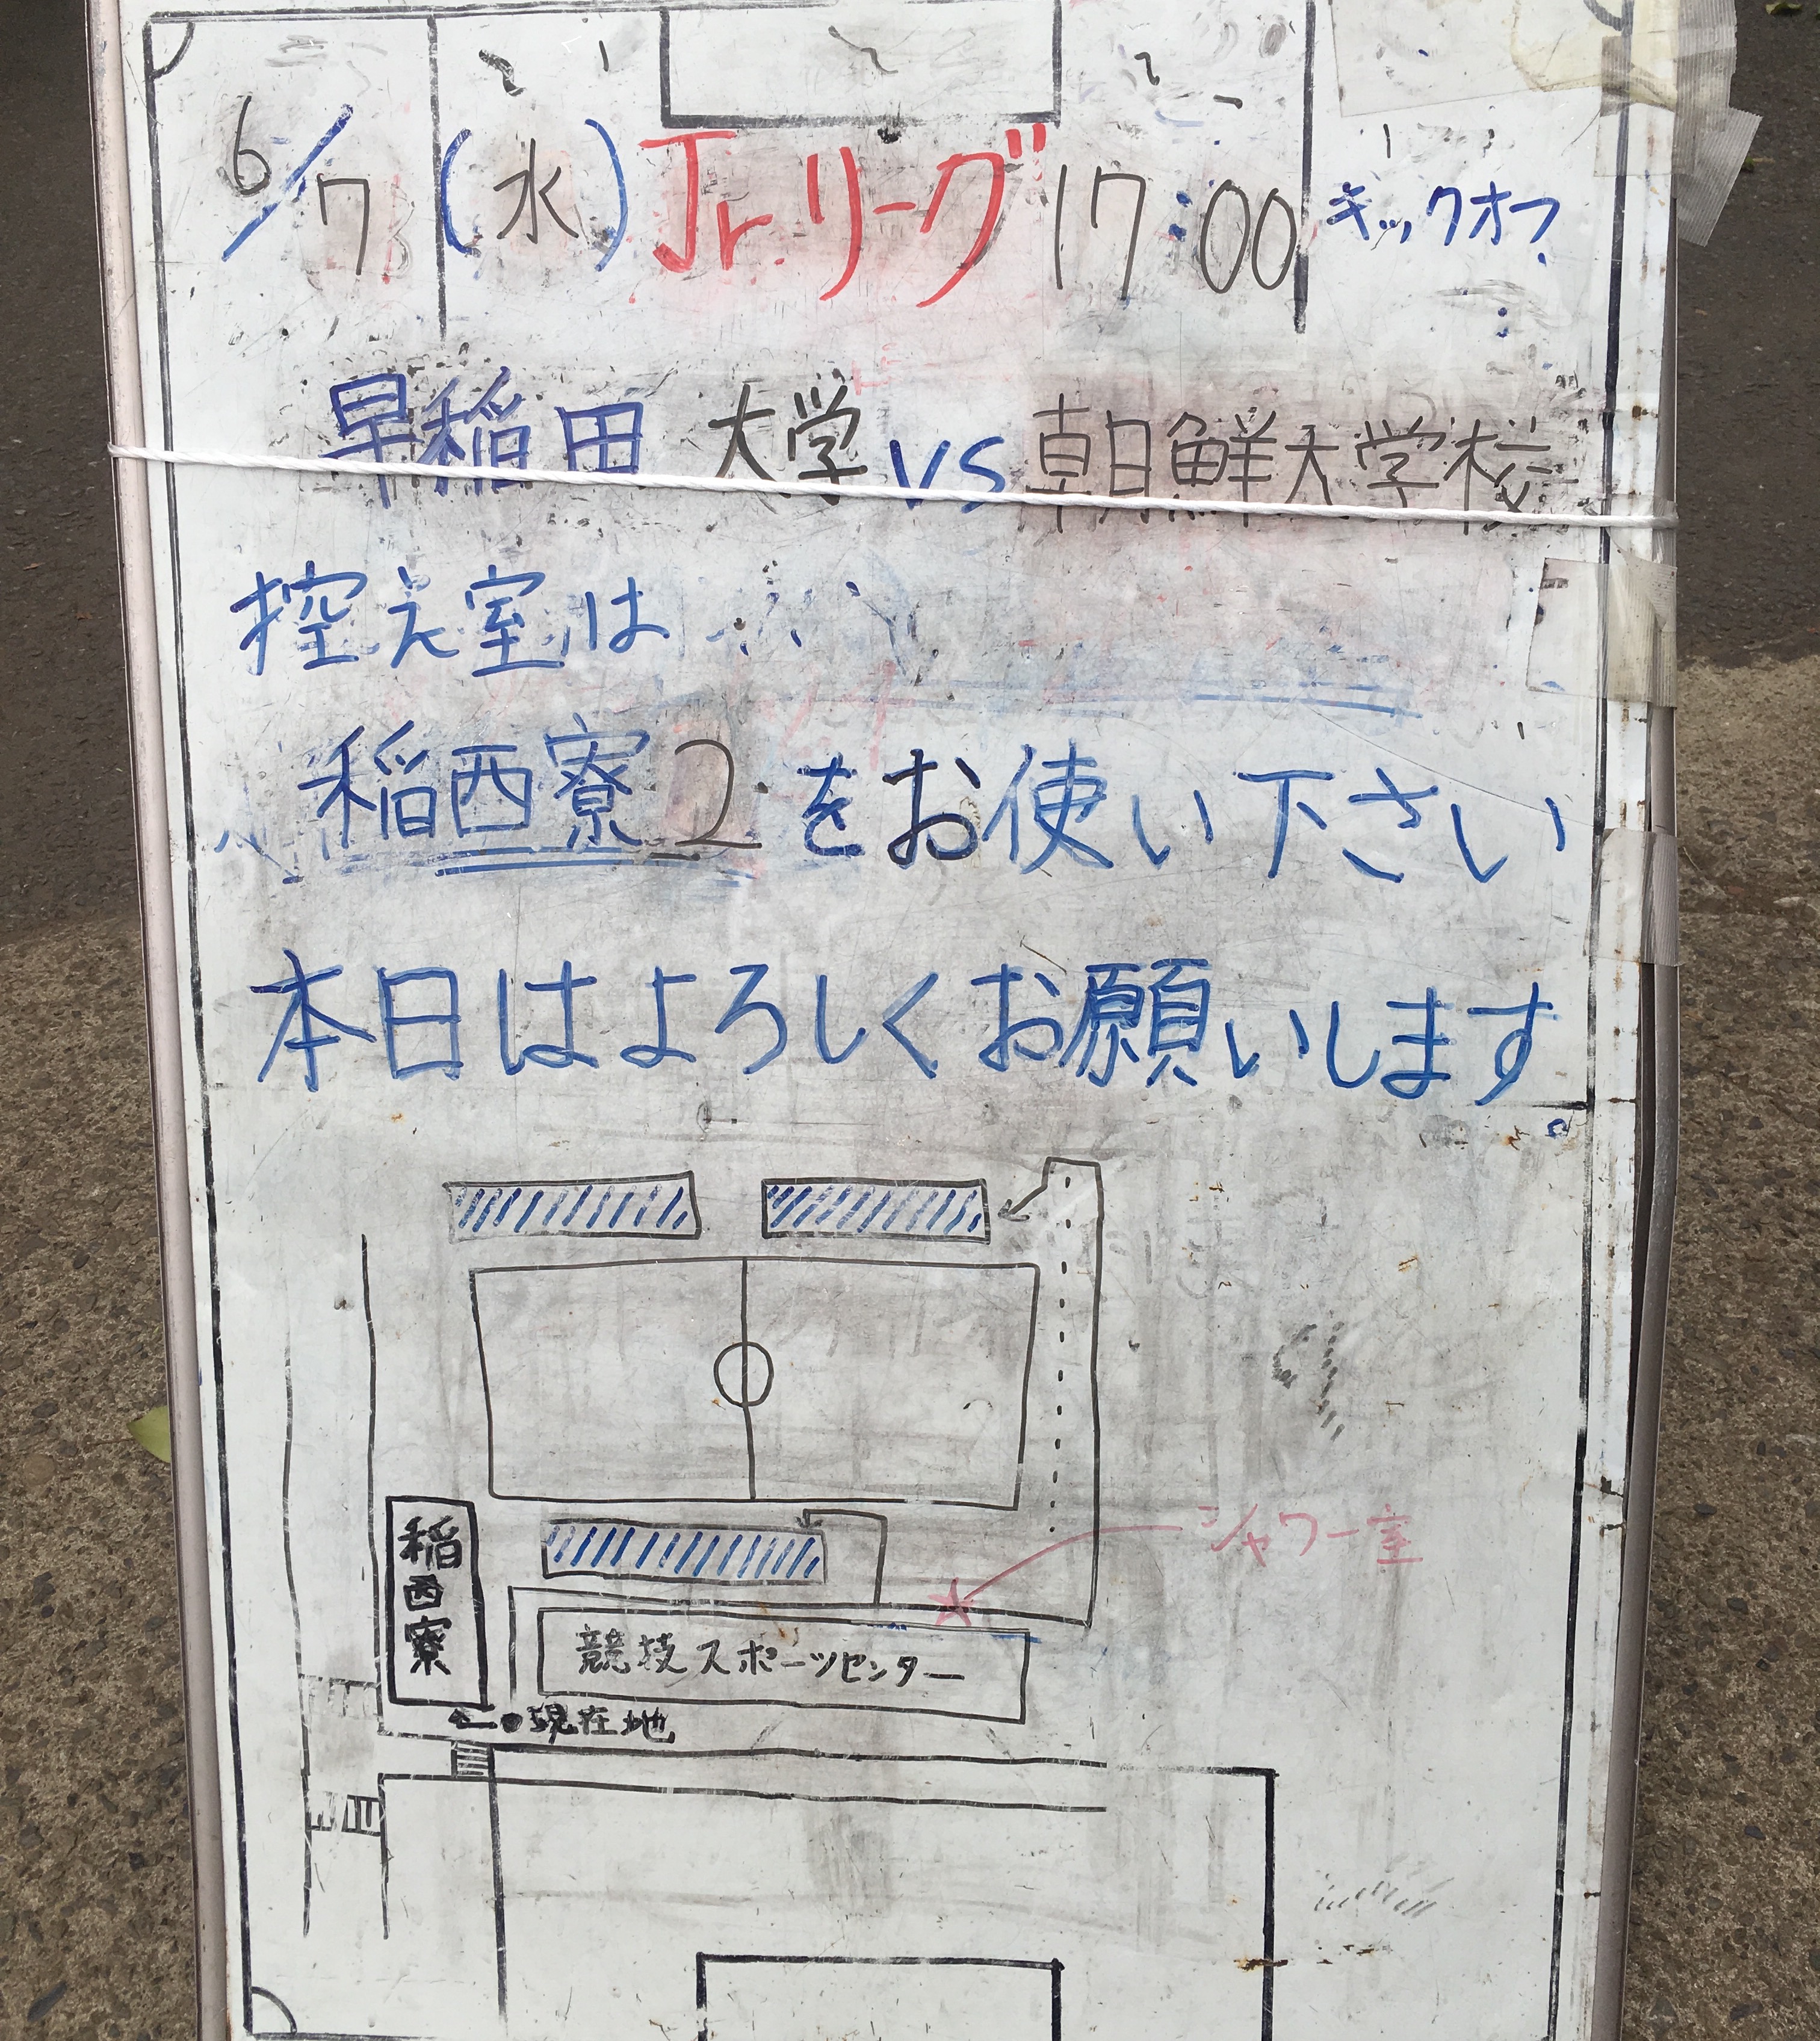 6/7 (水) Jrリーグ 17:00 キックオフ
早稲田大学 vs 朝鮮大学校
控え室は
稲西寮2をお使い下さい
本日はよろしくお願いします
シャワー室
稲西寮
競技スポーツセンター
←●現在地